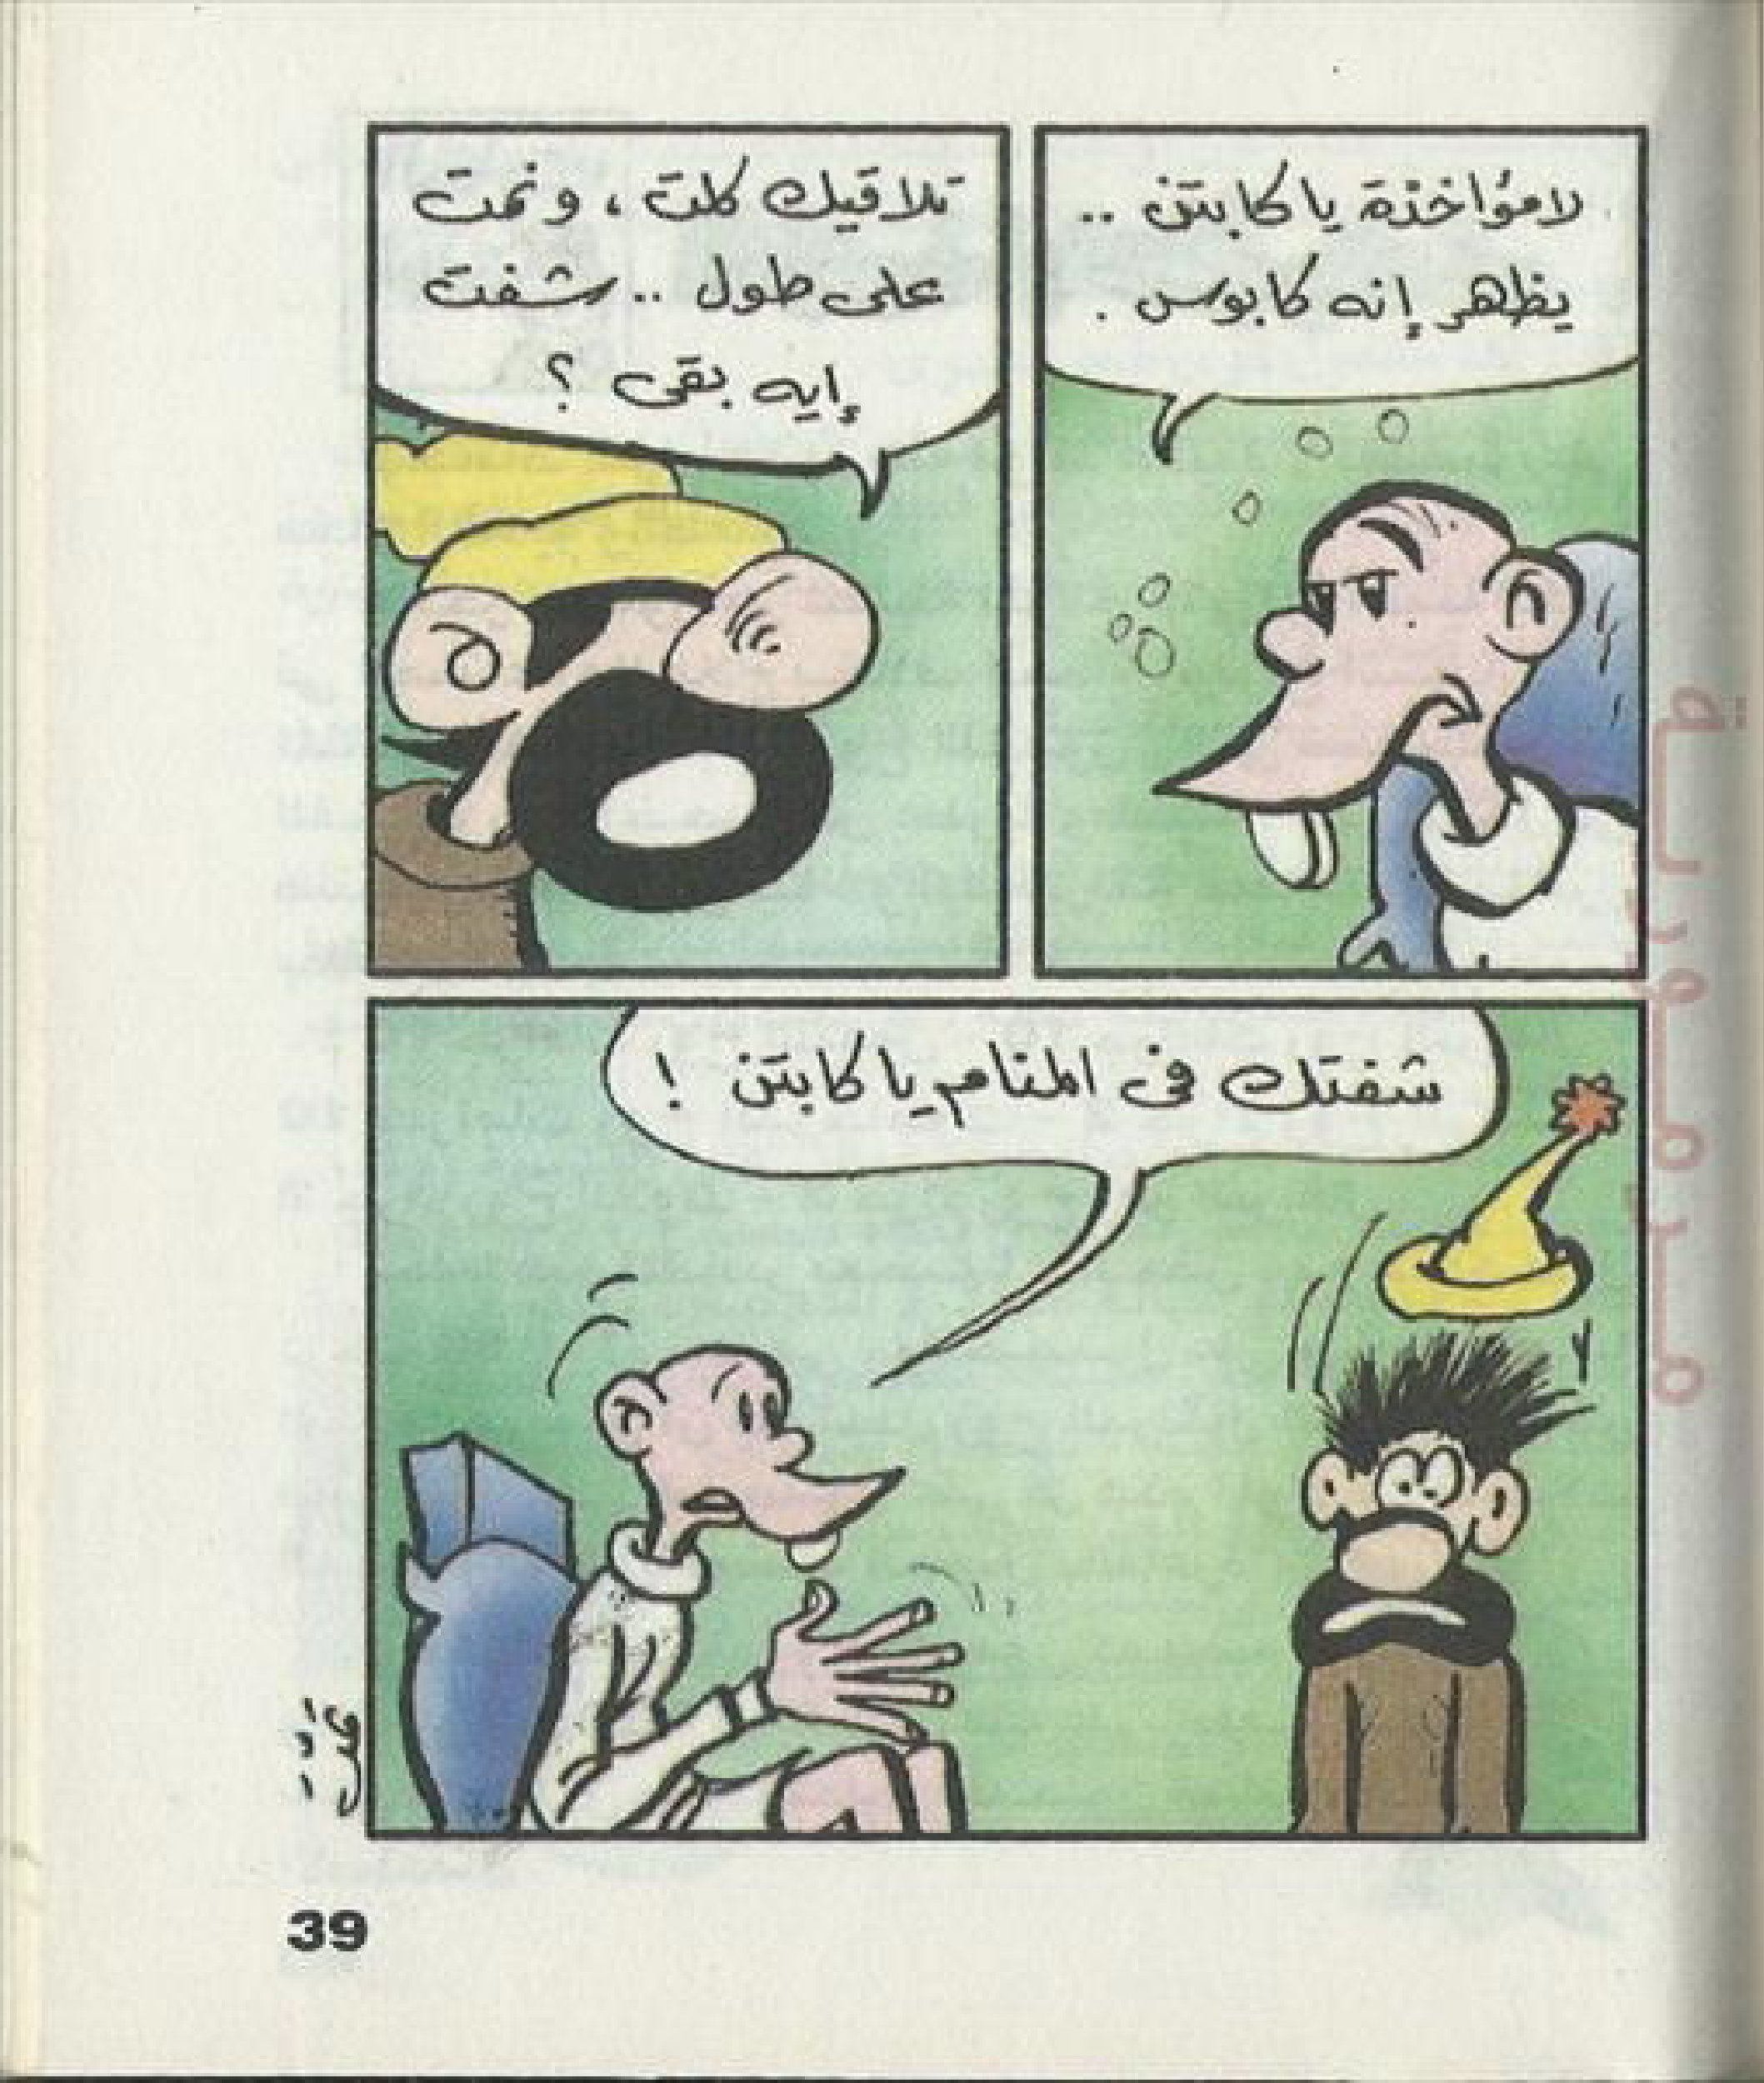 لامؤاخذة يا كابتن ..
يظهر إنه كابوس .
تلاقيك كلت ، ونمت
على طول .. شفت
إيه بقى ؟
شفتك فى المنام يا كابتن !
39